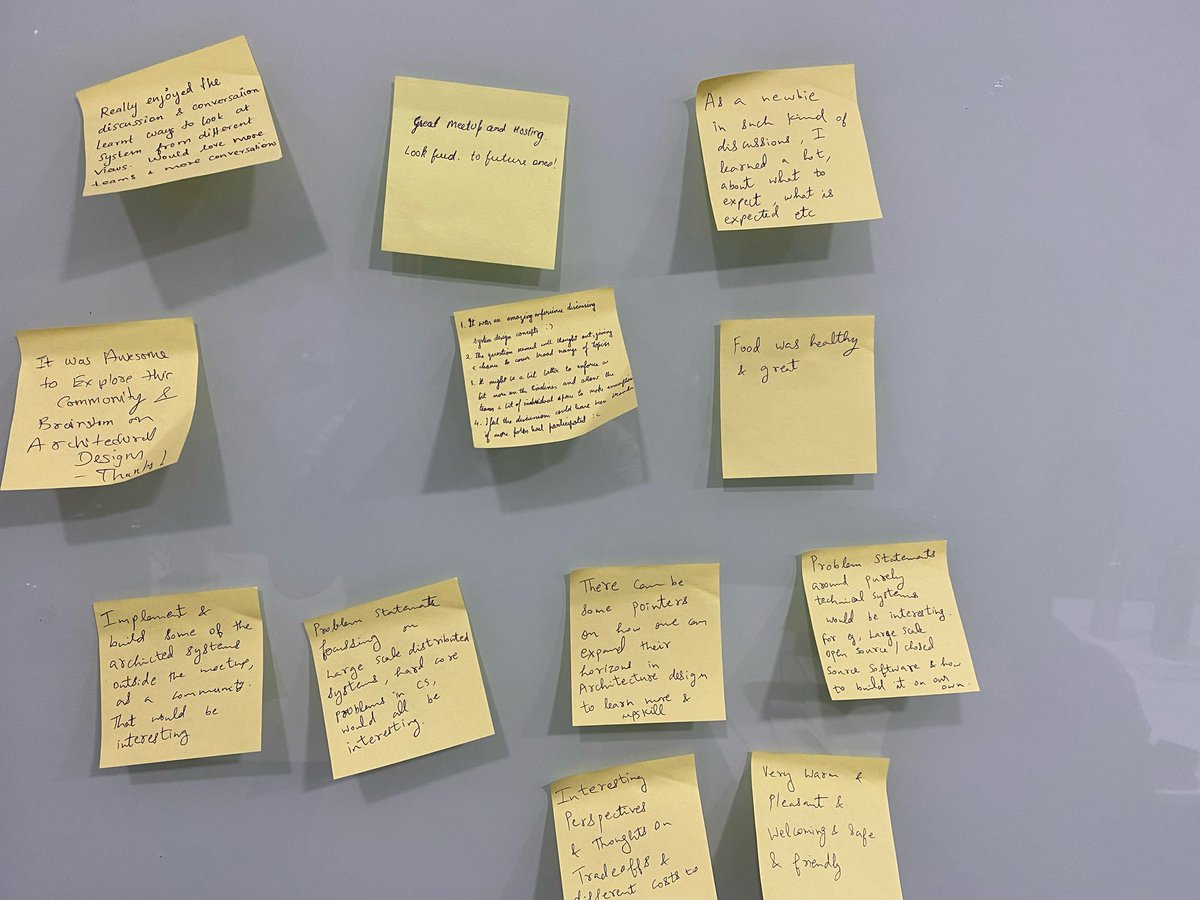 Really enjoyed the
discussion & conversation
learnt ways to look at
System from different
views. Would love more
teams & more conversations
Great meetup and Hosting
Look fwd. to future ones!
As a newbie
in such kind of
discussions, I
learned a lot,
about what to
expect, what is
expected etc
It was Awesome
to Explore this
Community &
Brainstorm on
Architectural
Designs
- Thanks!
1. It was an amazing experience discussing
system design concepts :)
2. The question seemed well thought out, giving
a chance to cover broad range of topics
3. It might be a bit better to enforce a
bit more on the timelines and allow the
teams a bit of individual space to make assumptions
4. I feel the discussions could have been
if more folks had participated :
Food was healthy
& great
Implement &
build some of the
archicted systems
outside the meetup,
as a community
That would be
interesting
Problem Statements
focussing on
large scale distributed
systems, hard core
problems in CS,
would all be
interesting.
There can be
some pointers
on how one can
expand their
horizons in
Architecture design
to learn more &
upskill
Problem Statements
around purely
technical systems
would be interesting.
for eg, Large scale
open source / closed
source software & how
to build it on our
own.
Interesting
Perspectives
& Thoughts on
Tradeoffs &
different costs to
Very warm &
Pleasant &
Welcoming & Safe
& friendly